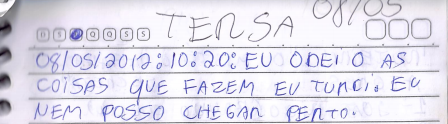 08/05
TERSA
D S T Q Q S S
08/05/2012: 10:20: EU ODEIO AS
COISAS QUE FAZEM EU TUNCI. EU
NEM POSSO CHEGAR PERTO.